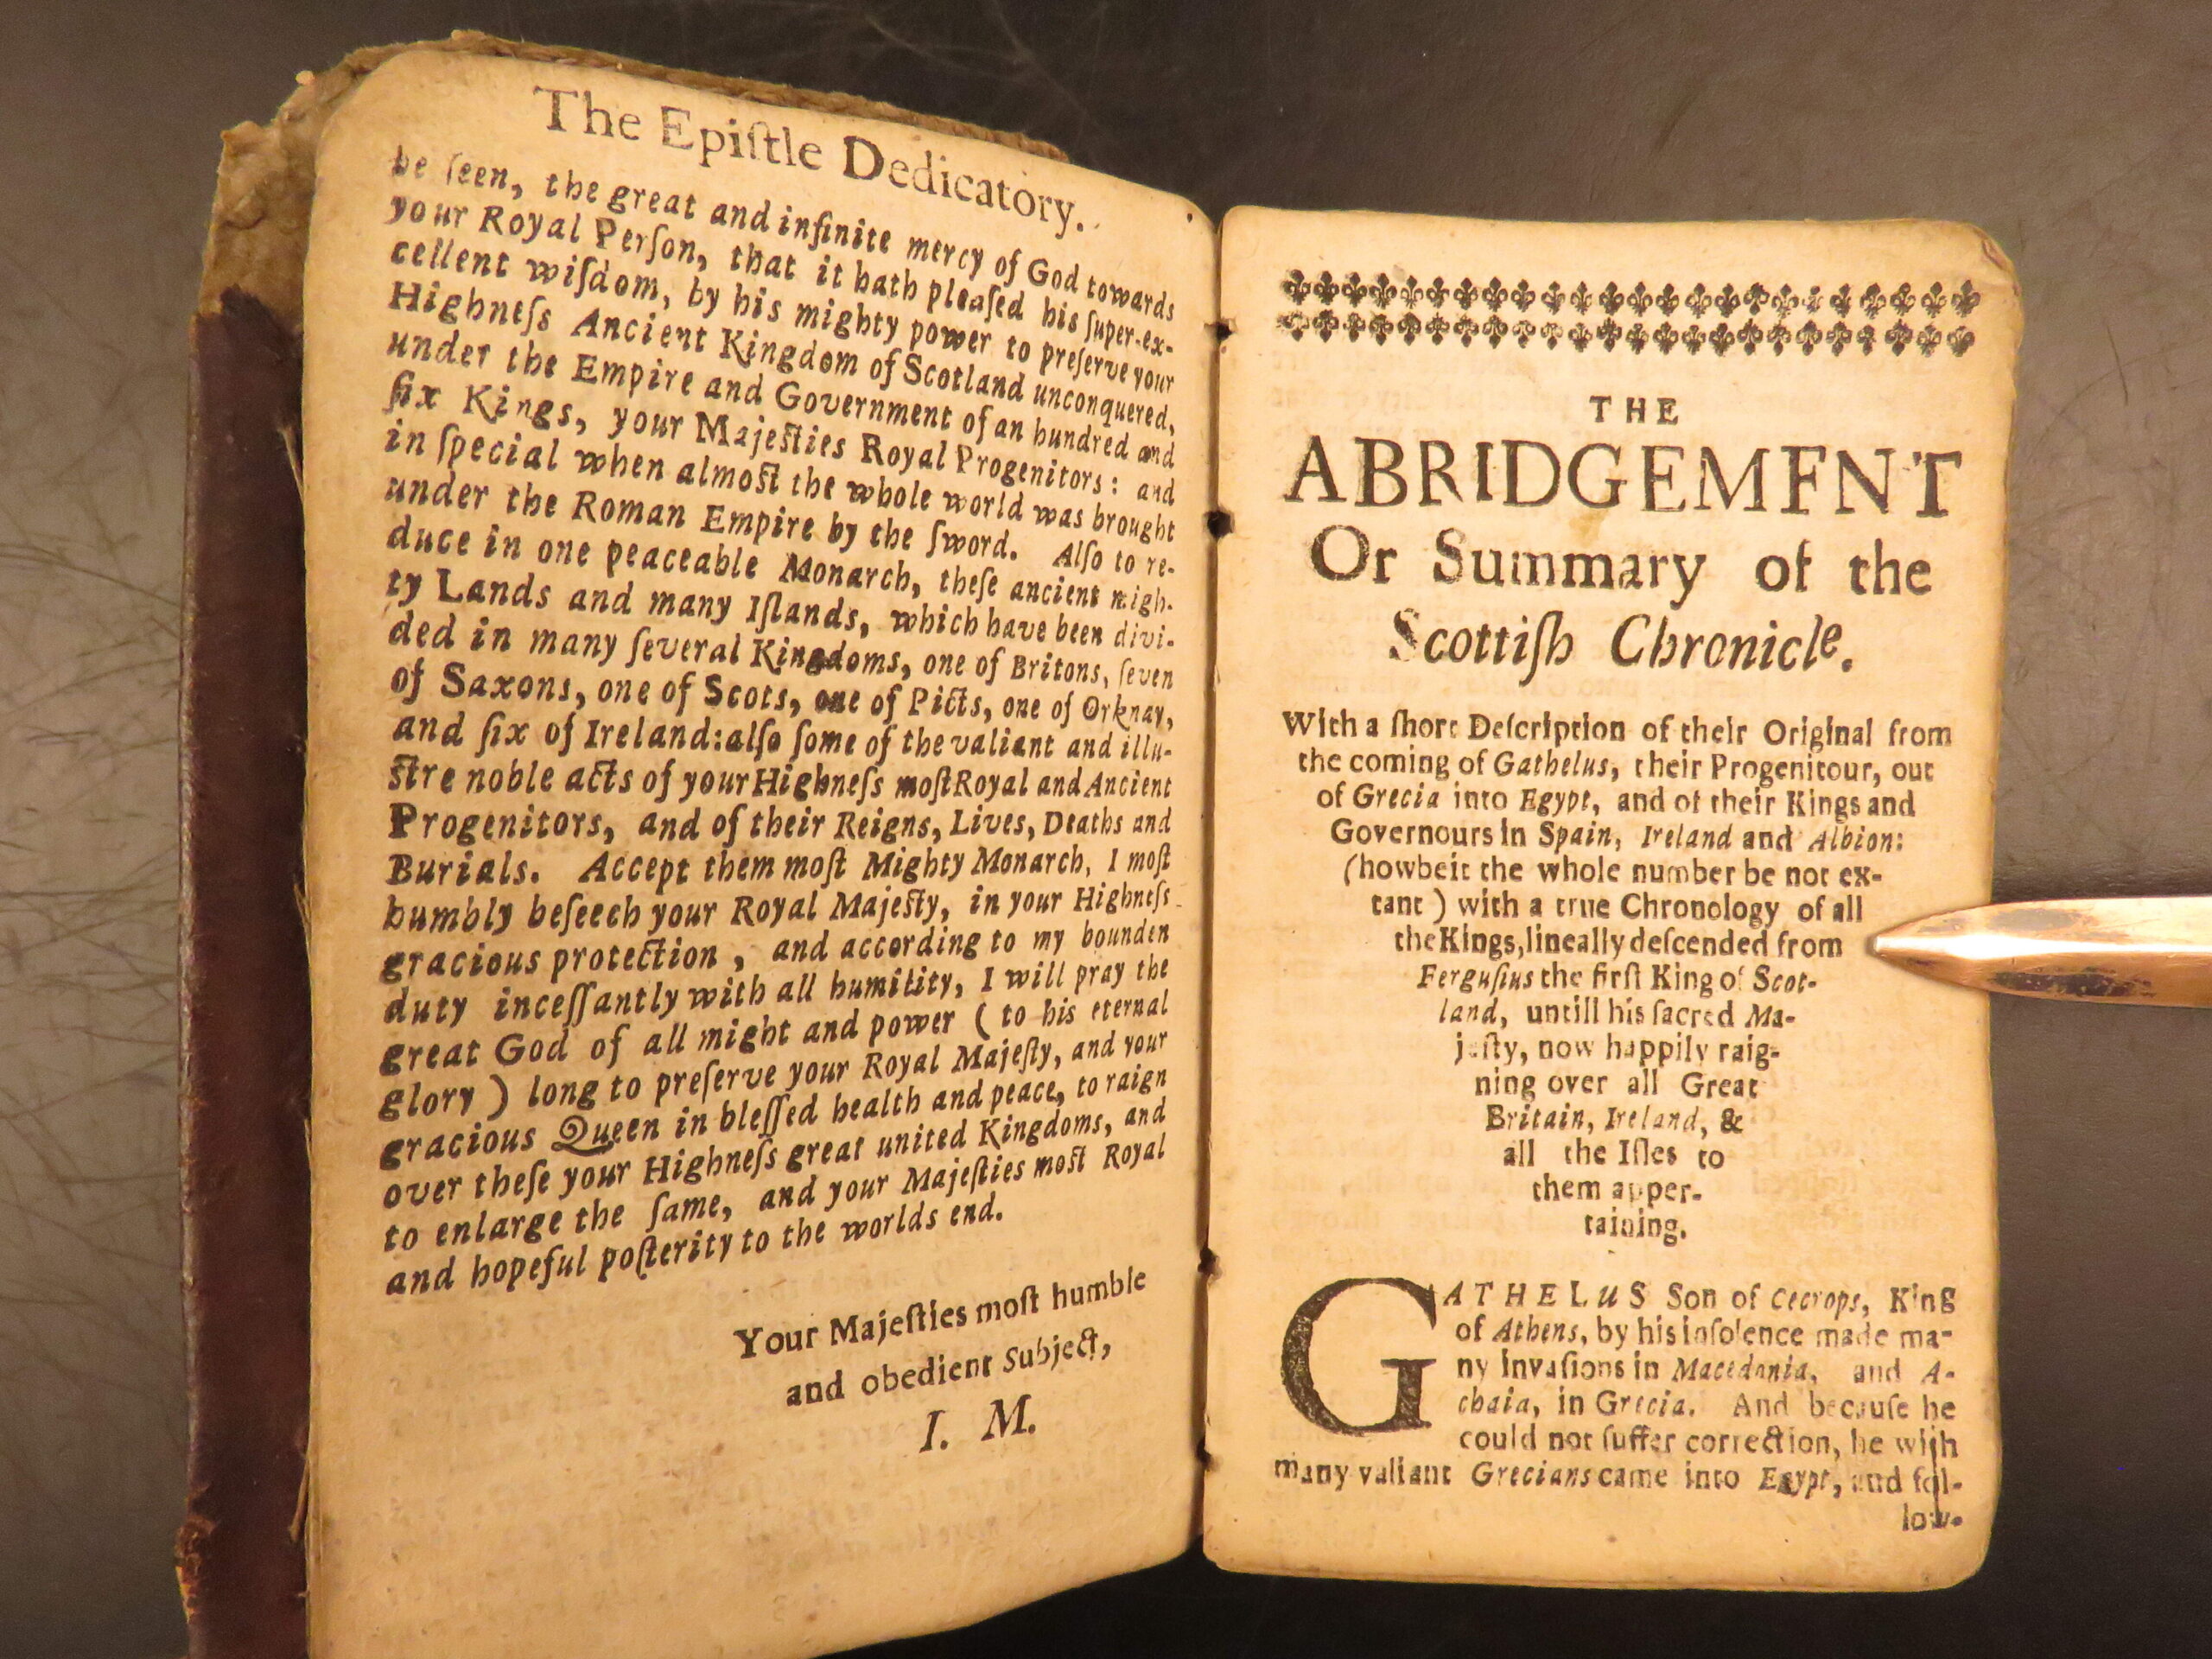 The Epiſtle Dedicatory.
be ſeen, the great and infinite mercy of God towards
your Royal Perſon, that it hath pleaſed his ſuper-ex-
cellent wiſdom, by his mighty power to preſerve your
Highneſs Ancient Kingdom of Scotland unconquered,
under the Empire and Government of an hundred and
ſix Kings, your Majeſties Royal Progenitors: and
in ſpecial when almoſt the whole world was brought
under the Roman Empire by the ſword. Alſo to re-
duce in one peaceable Monarch, theſe ancient migh-
ty Lands and many Iſlands, which have been divi-
ded in many ſeveral Kingdoms, one of Britons, ſeven
of Saxons, one of Scots, one of Picts, one of Orknay,
and ſix of Ireland: alſo ſome of the valiant and illu-
ſtre noble acts of your Highneſs moſt Royal and Ancient
Progenitors, and of their Reigns, Lives, Deaths and
Burials. Accept them moſt Mighty Monarch, I moſt
humbly beſeech your Royal Majeſty, in your Highneſs
gracious protection, and according to my bounden
duty inceſſantly with all humility, I will pray the
great God of all might and power ( to his eternal
glory ) long to preſerve your Royal Majeſty, and your
gracious Queen in bleſſed health and peace, to raign
over theſe your Highneſs great united Kingdoms, and
to enlarge the ſame, and your Majeſties moſt Royal
and hopeful poſterity to the worlds end.
Your Majeſties moſt humble
and obedient Subject,
I. M.
THE
ABRIDGEMENT
Or Summary of the
Scottiſh Chronicle.
With a ſhort Deſcription of their Original from
the coming of Gathelus, their Progenitour, out
of Grecia into Egypt, and of their Kings and
Governours in Spain, Ireland and Albion:
(howbeit the whole number be not ex-
tant ) with a true Chronology of all
the Kings, lineally deſcended from
Ferguſius the firſt King of Scot-
land, untill his ſacred Ma-
jeſty, now happily raig-
ning over all Great
Britain, Ireland, &
all the Iſles to
them apper-
taining.
GATHELUS Son of Cecrops, King
of Athens, by his inſolence made ma-
ny invaſions in Macedonia, and A-
chaia, in Grecia. And becauſe he
could not ſuffer correction, he with
many valiant Grecians came into Egypt, and fol-
low-